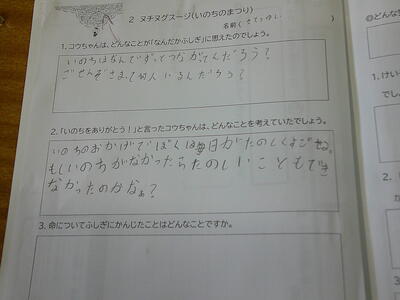 2 ヌチヌグスージ(いのちのまつり)
名前(
)
1. コウちゃんは、どんなことが「なんだかふしぎ」に思えたのでしょう。
いのちはなんでずってつながてんだろう?
ごせんぞさまって何人いるんだろう?
2. 「いのちをありがとう!」と言ったコウちゃんは、どんなことを考えていたでしょう。
いのちのおかげでぼくは毎日がたのしくすごせる。
もしいのちがなかったらたのしいこともでき
なかったのかなぁ?
3. 命についてふしぎにかんじたことはどんなことですか。
◎どんな
1. けい
でし
2.